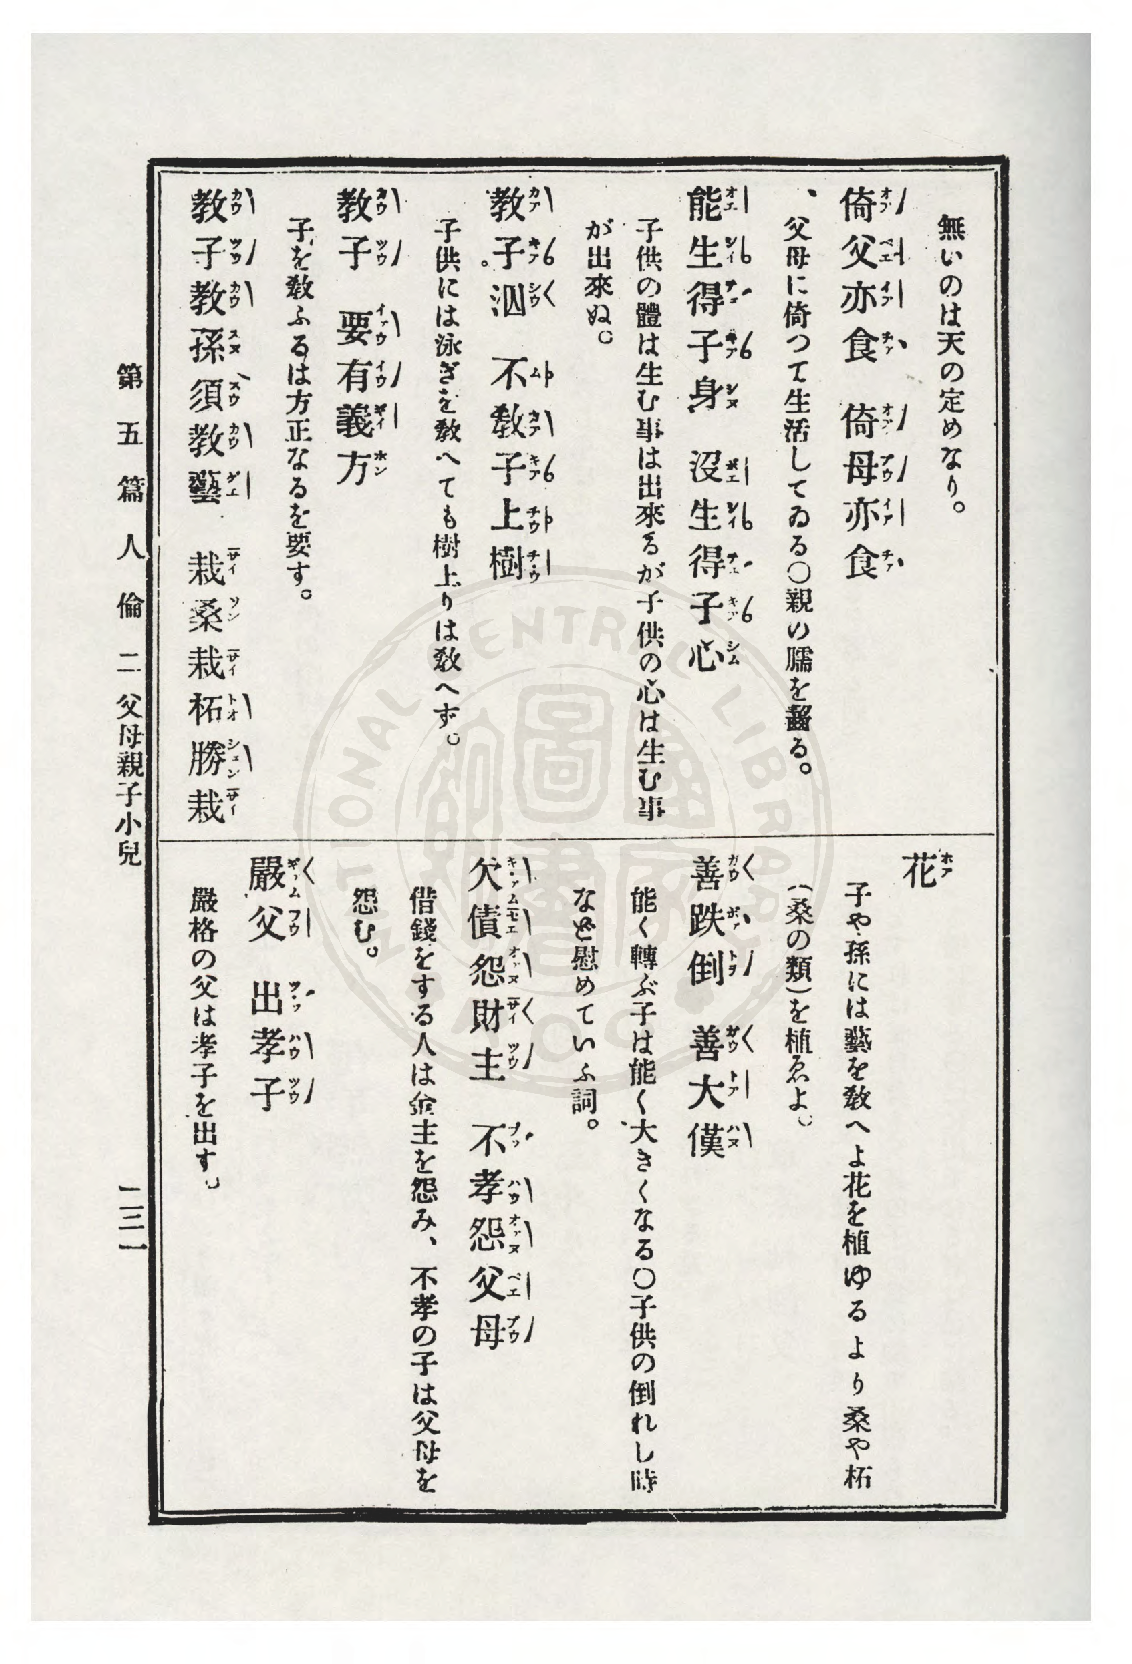 無いのは天の定めなり。
倚父亦食　倚母亦食
父母に倚つて生活してゐる〇親の臑を齧る。
能生得子身　沒生得子心
子供の體は生む事は出來るが子供の心は生む事
が出來ぬ。
教子泅　不教子上樹
子供には泳ぎを教へても樹上りは教へず。
教子　要有義方
子を教ふるは方正なるを要す。
教子教孫須教藝　栽桑栽柘勝栽
花
子や孫には藝を教へよ花を植ゆるより桑や柘
(桑の類)を植ゑよ。
善跌倒　善大僕
能く轉ぶ子は能く大きくなる〇子供の倒れし時
など慰めていふ詞。
欠債怨財主　不孝怨父母
借錢をする人は金主を怨み、不孝の子は父母を
怨む。
嚴父　出孝子
嚴格の父は孝子を出す。
第五篇　人倫　二　父母親子小兒
二三一
NATIONAL CENTRAL LIBRARY